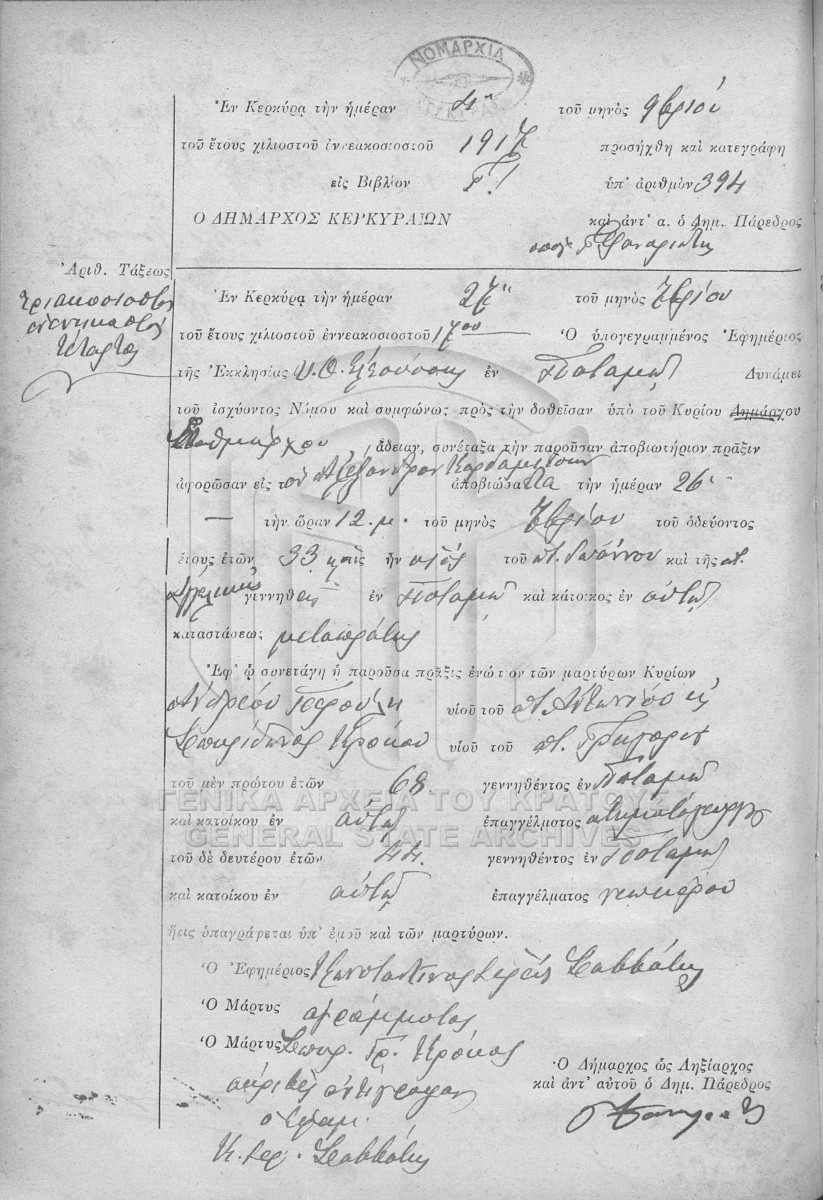 ΝΟΜΑΡΧΙΑ
Ἐν Κερκύρᾳ τὴν ἡμέραν 4η τοῦ μηνὸς 9βρίου
τοῦ ἔτους χιλιοστοῦ ἐννεακοσιοστοῦ 1917 προσήχθη καὶ κατεγράφη
εἰς Βιβλίον Γ' ὑπ' ἀριθμὸν 394
Ο ΔΗΜΑΡΧΟΣ ΚΕΡΚΥΡΑΙΩΝ καὶ ἀντ' α. ὁ Δημ. Πάρεδρος
Ἀριθ. Τάξεως
τριακοσιοστὸς
τέταρτος
Ἐν Κερκύρᾳ τὴν ἡμέραν 27η τοῦ μηνὸς 7βρίου
τοῦ ἔτους χιλιοστοῦ ἐννεακοσιοστοῦ 17ου Ὁ ὑπογεγραμμένος Ἐφημέριος
τῆς Ἐκκλησίας Υ. Θ. Ἐλεούσης ἐν Ποταμῷ Δυνάμει
τοῦ ἰσχύοντος Νόμου καὶ συμφώνως πρὸς τὴν δοθεῖσαν ὑπὸ τοῦ Κυρίου Δημάρχου
Σταθμάρχου ἄδειαν, συνέταξα τὴν παροῦσαν ἀποβιωτήριον πρᾶξιν
ἀφορῶσαν εἰς τὸν Ἀλέξανδρον ἀποβιώσαντα τὴν ἡμέραν 26
τὴν ὥραν 12 μ. τοῦ μηνὸς 7βρίου τοῦ ὁδεύοντος
ἔτους ἐτῶν 33 ὅστις ἦν υἱὸς τοῦ ποτ. Ἰωάννου καὶ τῆς ποτ.
Ἀγγελικῆς γεννηθεὶς ἐν Ποταμῷ καὶ κάτοικος ἐν αὐτῷ
καταστάσεως μεταπράτης
Ἐφ' ᾧ συνετάγη ἡ παροῦσα πρᾶξις ἐνώπιον τῶν μαρτύρων Κυρίων
Ἀνδρέου υἱοῦ τοῦ ποτ. Ἀντωνίου κ
Σπυρίδωνος Κρόκου υἱοῦ τοῦ ποτ. Γρηγορίου
τοῦ μὲν πρώτου ἐτῶν 68 γεννηθέντος ἐν Ποταμῷ
καὶ κατοίκου ἐν αὐτῷ ἐπαγγέλματος κτηματίου
τοῦ δὲ δευτέρου ἐτῶν 44. γεννηθέντος ἐν Ποταμῷ
καὶ κατοίκου ἐν αὐτῷ ἐπαγγέλματος γεωργοῦ
ἥτις ὑπογράφεται ὑπ' ἐμοῦ καὶ τῶν μαρτύρων.
Ὁ Ἐφημέριος Κωνσταντῖνος Ἱερεὺς Σαββάτης
Ὁ Μάρτυς ἀγράμματος
Ὁ Μάρτυς Σπυρ. Γρ. Κρόκος
ἀκριβὲς ἀντίγραφον
ὁ Ἐφημ.
Κ. Ιερ. Σαββάτης
Ὁ Δήμαρχος ὡς Ληξίαρχος
καὶ ἀντ' αὐτοῦ ὁ Δημ. Πάρεδρος
ΓΕΝΙΚΑ ΑΡΧΕΙΑ ΤΟΥ ΚΡΑΤΟΥΣ
GENERAL STATE ARCHIVES